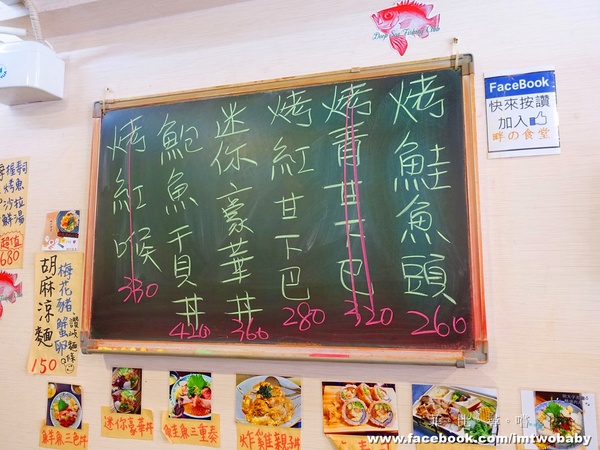 Deep Sea Fishing Club
FaceBook
快來按讚
加入
畔の食堂
烤鮭魚頭
260
烤青甘下巴
320
烤紅甘下巴
280
迷你豪華丼
360
鮑魚干貝丼
420
烤紅喉
330
握壽司
烤魚
沙拉
鮮湯
超值
680
梅花豬蟹卵
胡麻涼麵
150
迷你豪華丼
鮭魚三重奏
炸雞親子丼
www.facebook.com/imtwobaby